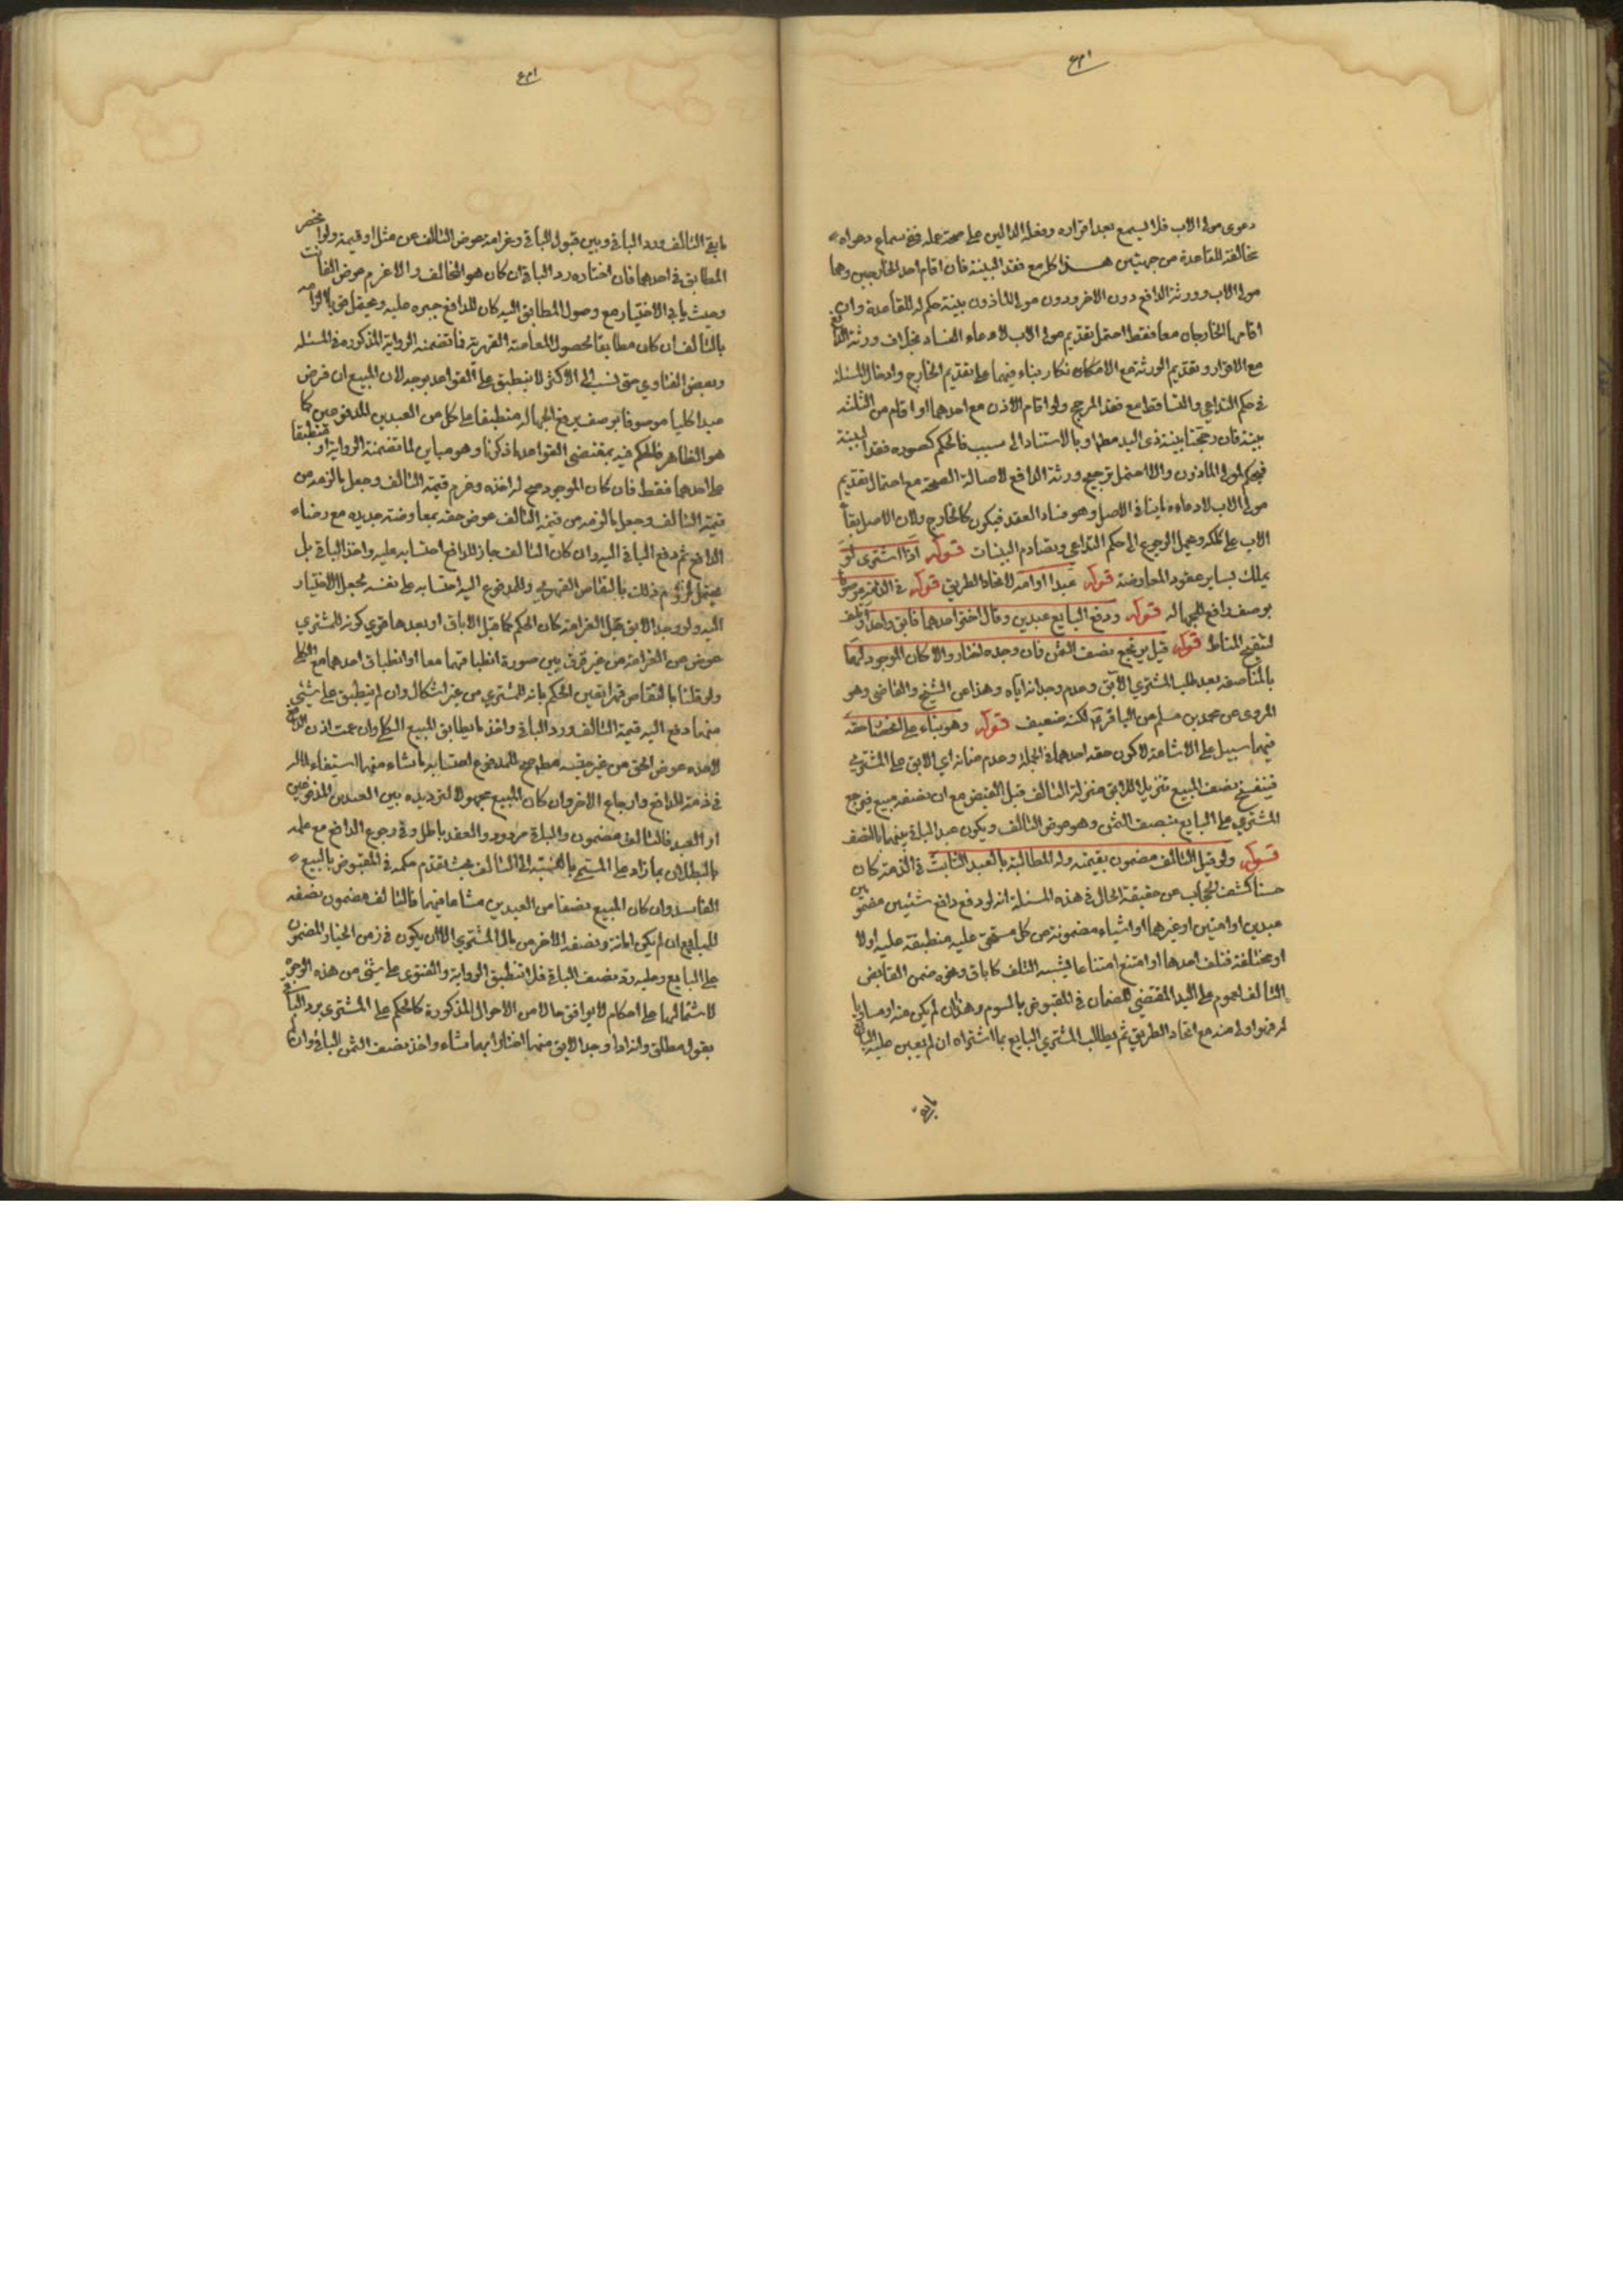 دعوى مولى الاب فلا يسمع بعد اقراره وفعله الدالين على صحة عمله ففي سماع دعواه
مخالفة للقاعدة من جهتين هذا كله مع فقد البينة فان اقام احد الخارجين وهما
مولى الاب وورثة الدافع دون الاخر ودون مولى الماذون بينة حكم له للقاعدة وان
اقامها الخارجان معا فقط احتمل تقديم مولى الاب لادعاء الفساد بخلاف ورثة الدافع
مع الاقرار وتقديم الورثة مع الامكان بناء فيهما على تقديم الخارج وادخال المسئلة
في حكم التداعي والتساقط مع فقد المرجح ولو اقام الاذن مع احدهما او اقام من الثلثه
بينة فان رجحنا بينة ذى اليد مطلقا او بالاستناد الى سبب فالحكم كصوره فقد البينة
فيحكم لمولى الماذون والا احتمل ترجيح ورثة الدافع لاصالة الصحة مع احتمال تقديم
مولى الاب لادعاءه ما ينافى الاصل وهو فساد العقد فيكون كالخارج ولان الاصل بقاء
الاب على ملكه ويحتمل الرجوع الى حكم التداعي وتصادم البينات قوله اذا اشترى او
يملك بساير عقود المعاوضة قوله عبدا او امة لاتحاد الطريق قوله في الذمة موصوفا
بوصف رافع للجهاله قوله ودفع البايع عبدين وقال اختر احدهما فابق واحد او تلف
لتنقيح المناط قوله قيل يرتجع نصف الثمن فان وجده اختار والا كان الموجود لهما
بالمناصفه بعد طلب المشتري الآبق وعدم وجدانه اياه وهذا عن الشيخ والقاضي وهو
المروى عن محمد بن مسلم عن الباقر لكنه ضعيف قوله وهو بناء على انحصار حقه
فيهما سبيل على الاشاعة لاكون حقه احدهما في الجملة وعدم ضمانه اي الابق على المشترى
فينفسخ نصف المبيع تنزيلا للابق منزلة التالف قبل القبض مع ان نصفه مبيع فيرجع
المشتري على البايع بنصف الثمن وهو عوض التالف ويكون عبد الباقي بينهما بالنصف
قوله ولو قيل التالف مضمون بقيمته وله المطالبة بالعبد الثابت في الذمة كان
حسنا كشف الحجاب عن حقيقة الحال في هذه المسئلة انه لو دفع دافع شيئين مضمونين
عبدين او امتين او غيرهما او اشياء مضمونة عن كل مستحق عليه منطبقة عليه اولا
او مختلفة فتلف احدها او امتنع امتناعا يشبه التلف كاباق ونحوه ضمن القابض
التالف لعموم على اليد المقتضي للضمان في المقبوض بالسوم وهذا ان لم يكن منه او مساويا
له فهو اولى منه مع اتحاد الطريق ثم يطالب المشتري البايع بما اشتراه ان لم يتعين عليه
ما بقي التالف ورد الباقي وبين قبول الباقي وغرامة عوض التالف من مثل او قيمة ولو انحصر
المطابق في احدهما فان اختاره رد الباقي ان كان هو المخالف والا غرم عوض الفائت
وحيث يابى الاختيار مع وصول المطابق اليه كان للدافع جبره عليه ويحتمل
بالتالف ان كان مطابقا لحصول المعاوضة القهرية فما تضمنته الرواية المذكورة في المسئله
وبعض الفتاوي حتى نسب الى الاكثر لا ينطبق على القواعد بوجه لان المبيع ان فرض
عبدا كليا موصوفا بوصف يرفع الجهاله منطبقا على كل من العبدين المدفوعين كما
هو الظاهر فالحكم فيه بمقتضى القواعد ما ذكرنا وهو مباين لما تضمنته الرواية او منطبقا
على احدهما فقط فان كان الموجود صح له اخذه وغرم قيمة التالف وجعل ما لزمه من
قيمة التالف وجعل ما لزمه من قيمة التالف عوض حقه بمعاوضة جديده مع رضاء
الدافع ثم دفع الباقي اليه وان كان التالف جاز للدافع احتسابه عليه واخذ الباقي بل
يحتمل لزوم ذلك بالتقاص القهري وللمدفوع اليه احتسابه على نفسه لجعل الاختيار
اليه ولو وجد الابق قبل الغرامة كان الحكم كما قبل الاباق او بعدها قوي كونه للمشتري
عوض عن الغرامة من غير فرق بين صورة انطباقهما معا او انطباق احدهما مع الكلي
ولو قلنا بالتقاص قهرا تعين الحكم بانه للمشتري من غير اشكال وان لم ينطبق على شيء
منهما دفع اليه قيمة التالف ورد الباقي واخذ ما يطابق المبيع الكلي وان عمت اذن الدافع
لاخذه عوض الحق من غير جنسه للمدفوع احتساب ما شاء منهما استيفاء لماله
في ذمة الدافع وارجاع الاخر وان كان المبيع مجهولا لترديده بين العبدين المدفوعين
او العبيد فالتالف مضمون والباقي مردود والعقد باطل وفي رجوع الدافع مع علمه
بالبطلان بما زاد على المسمى بالنسبة الى التالف بحث تقدم حكمه في المقبوض بالبيع
الفاسد وان كان المبيع نصفا من العبدين مشاعا فيهما فالتالف مضمون نصفه
للبايع ان لم يكن امانة ونصفه الاخر من مال المشتري الا ان يكون في زمن الخيار المضمون
على البايع وعليه رد نصف الباقي فلا تنطبق الرواية والفتوى على شئ من هذه الوجوه
لاشتمالهما على احكام لا يوافق حالا من الاحوال المذكورة كالحكم على المشترى برد الباقي
بقول مطلق وانه اذا وجد الابق منهما اختار ايهما شاء واخذ نصف الثمن الباقي وان